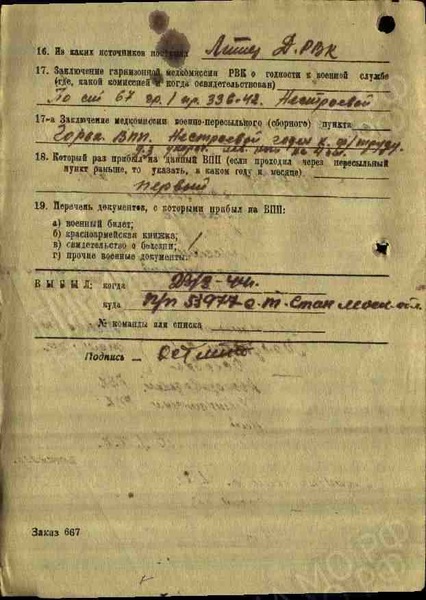 16. Из каких источников поступил Д.РВК
17. Заключение гарнизонной медкомиссии РВК о годности к военной службе
(где, какой комиссией и когда освидетельствован)
По ст 67 гр. I пр. 336-42. Нестроевой
17-а Заключение медкомиссии военно-пересыльного (сборного) пункта
Горьк. ВПП. Нестроевой годен к ф/труду
18. Который раз прибыл на данный ВПП (если проходил через пересыльный
пункт раньше, то указать, в каком году и месяце)
первый
19. Перечень документов, с которыми прибыл на ВПП:
а) военный билет;
б) красноармейская книжка;
в) свидетельство о болезни;
г) прочие военные документы:
ВЫБЫЛ: когда
куда п/п 53977 с.т. Стан Моск обл.
№ команды или списка
Подпись
Заказ 667
МО.РФ